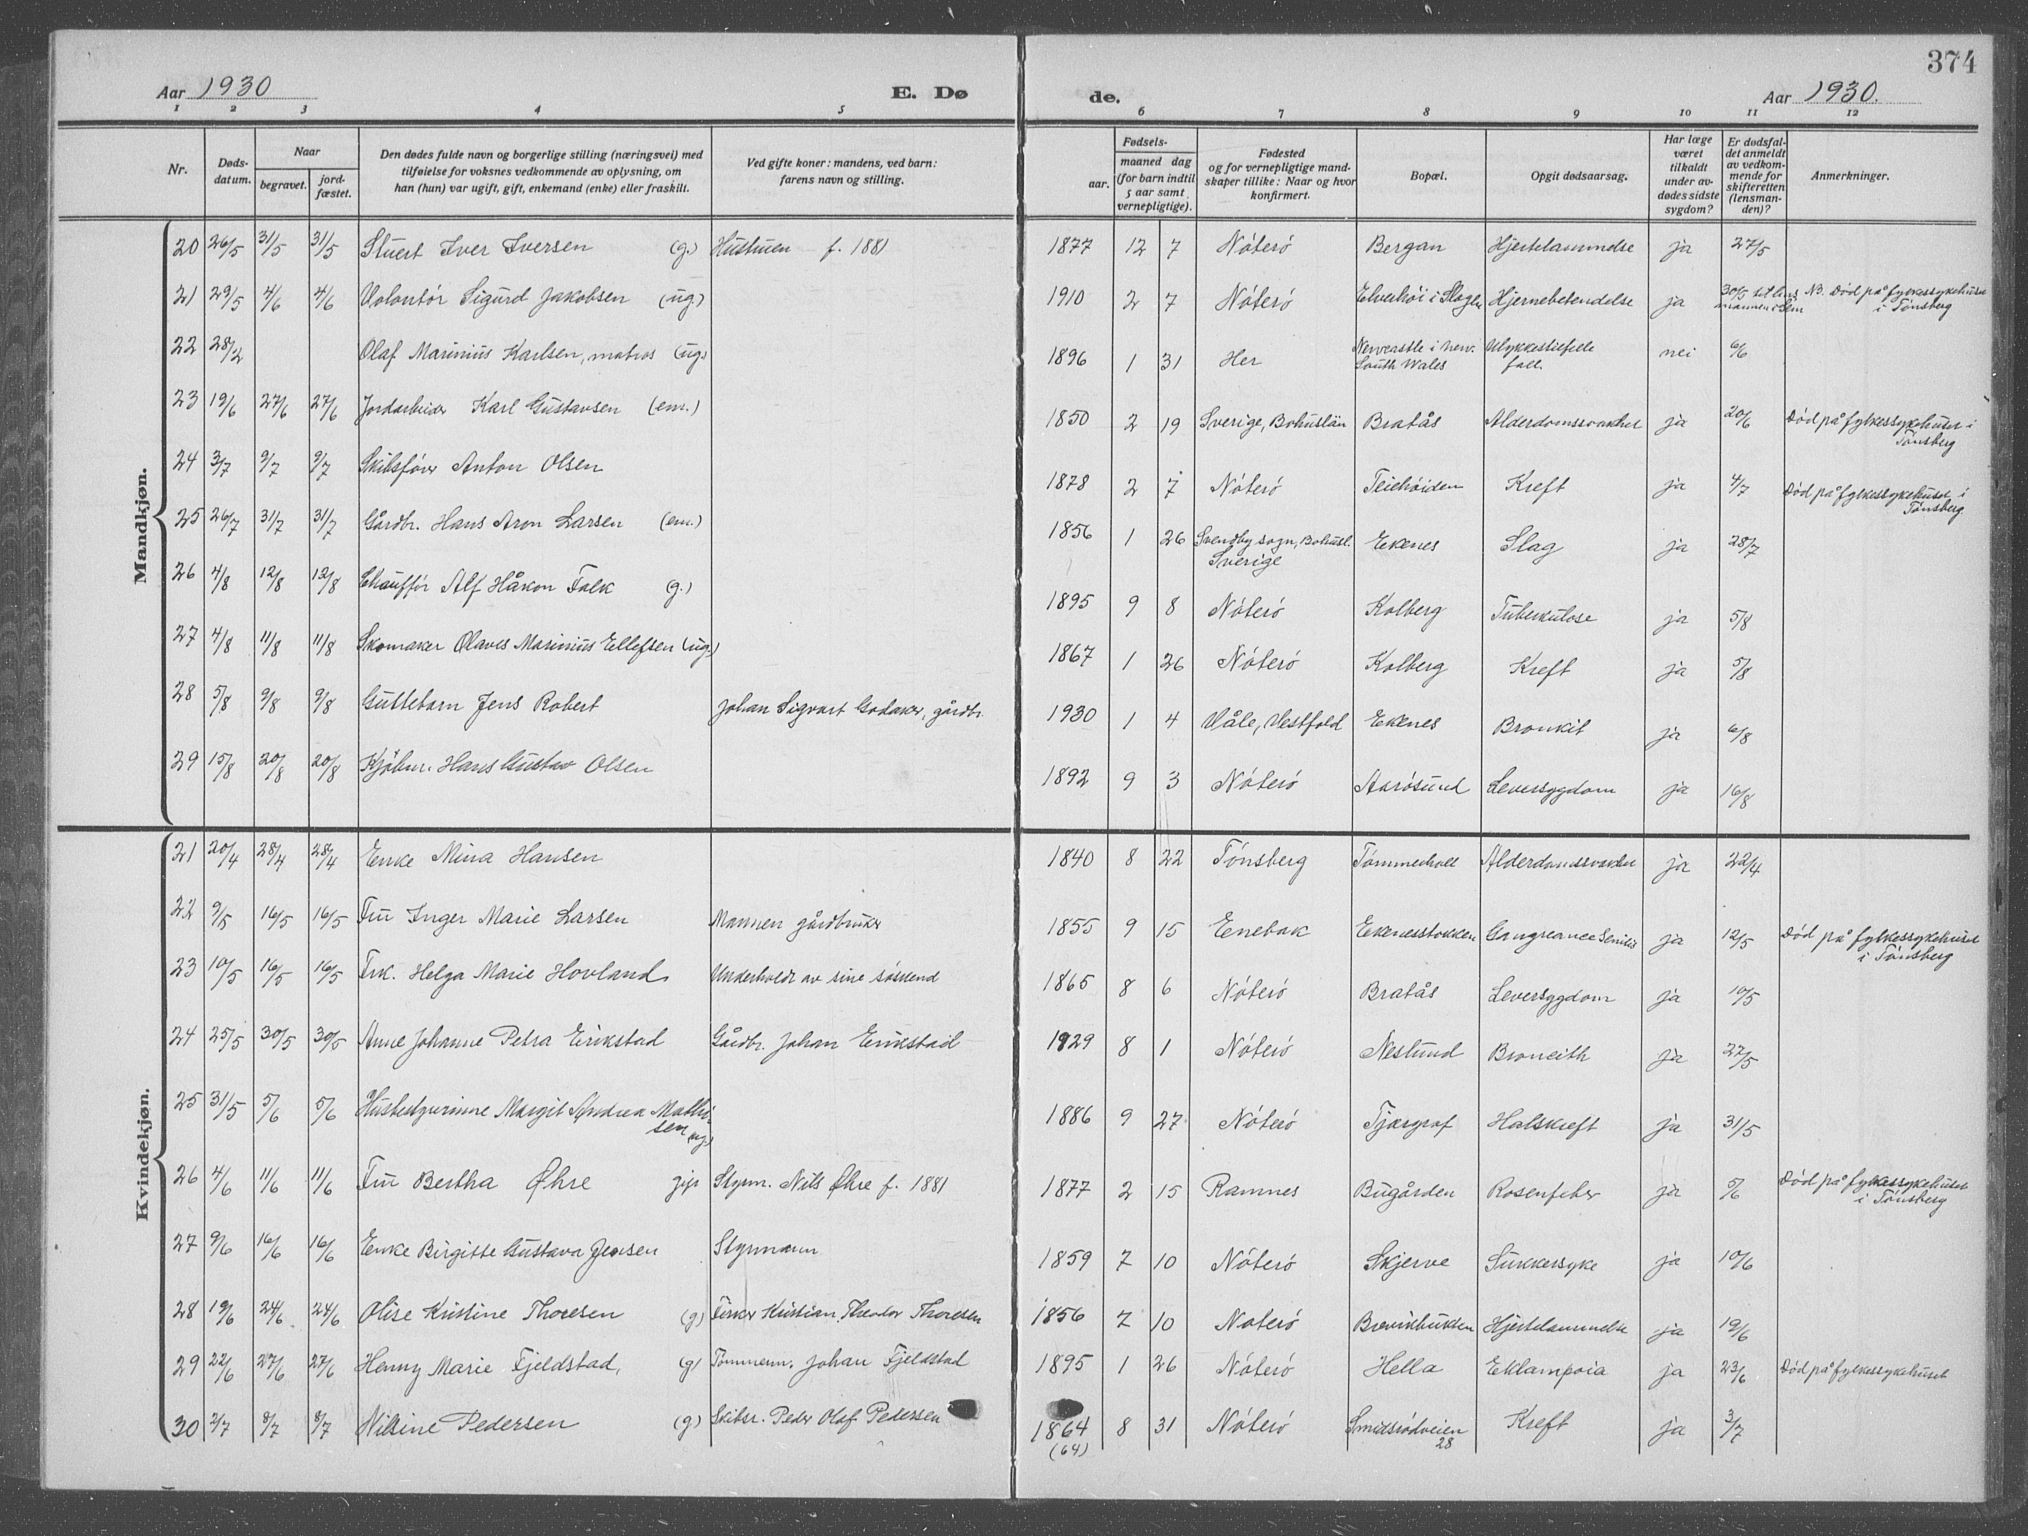 374
Aar 1930 E. Dø de. Aar 1930.
1 2 3 4 5 6 7 8 9 10 11 12
Nr. Døds-datum. Naar begravet. jord-fæstet. Den dødes fulde navn og borgerlige stilling (næringsvei) med tilføielse for voksnes vedkommende av oplysning, om han (hun) var ugift, gift, enkemand (enke) eller fraskilt. Ved gifte koner: mandens, ved barn: farens navn og stilling. Fødsels- aar. maaned dag (for barn indtil 5 aar samt vernepligtige). Fødested og for vernepligtige mand-skaper tillike: Naar og hvor konfirmert. Bopæl. Opgit dødsaarsag. Har læge været tilkaldt under av-dødes sidste sygdom? Er dødsfal-det anmeldt av vedkom-mende for skifteretten (lensman-den)? Anmerkninger.
Mandkjøn.
20 26/5 31/5 31/5 Stuert Iver Iversen (g.) Hustuen f. 1881 1877 12 7 Nøterø Bergan Hjertelammelse ja 27/5
21 29/5 4/6 4/6 Volontør Sigurd Jakobsen (ug.) 1910 2 7 Nøterø Elverhøi i Slagen Hjernebetendelse ja 30/5 til lens mannen i Sem N3. Død på fylkessykehuset i Tønsberg
22 28/2 Olaf Marinius Karlsen, matros (ug) 1896 1 31 Her Newcastle i New. South Wales Ulykkestilfelle fall. nei 6/6
23 19/6 27/6 27/6 Jordarbeider Karl Gustavsen (em.) 1850 2 19 Sverige, Bohuslän Bratås Alderdomssvakhet ja 20/6 Død på fylkessykehuset i Tønsberg
24 3/7 9/7 9/7 Skibsfører Anton Olsen 1878 2 7 Nøterø Teiehøiden Kreft ja 4/7 Død på fylkessykehuset i Tønsberg
25 26/7 31/7 31/7 Gårdbr. Hans Aron Larsen (em.) 1856 1 26 Svendby sogn, Bohusl. Sverige Ekenes Slag ja 28/7
26 4/8 12/8 12/8 Chauffør Alf Håkon Falk (g.) 1895 9 8 Nøterø Kolberg Tuberkulose ja 5/8
27 4/8 11/8 11/8 Skomaker Olaves Marinius Ellefsen (ug.) 1867 1 26 Nøterø Kolberg Kreft ja 5/8
28 5/8 9/8 9/8 Guttebarn Jens Robert Johan Sigvart Godaker, gårdbr. 1930 1 4 Våle, Vestfold Ekenes Bronkit ja 6/8
29 15/8 20/8 20/8 Kjøbm. Hans Gustav Olsen 1892 9 3 Nøterø Aarøsund Leversygdom ja 16/8
Kvindekjøn.
21 20/4 28/4 28/4 Enke Mina Hansen 1840 8 22 Tønsberg Tømmerholt Alderdomssvakhet ja 22/4
22 9/5 16/5 16/5 Fru Inger Marie Larsen Mannen gårdbruker 1855 9 15 Enebak Ekenesstokken Gangreance Senilis ja 12/5 Død på fylkessykehuset i Tønsberg
23 10/5 16/5 16/5 Frk. Helga Marie Hovland Underholdt av sine søskend 1865 8 6 Nøterø Bratås Leversygdom ja 10/5
24 25/5 30/5 30/5 Anne Johanne Petra Erikstad Gårdbr. Johan Erikstad 1929 8 1 Nøterø Neslund Broncith ja 27/5
25 31/5 5/6 5/6 Husbestyrerinne Margit Andrea Mathisen (ug) 1886 9 27 Nøterø Halskreft ja 31/5
26 4/6 11/6 11/6 Fru Bertha Øhre gift Styrm. Nils Øhre f. 1881 1877 2 15 Ramnes Bugården Rosenfeber ja 5/6 Død på fylkessykehuset i Tønsberg
27 9/6 16/6 16/6 Enke Birgitte Gustava Jensen Styrmann 1859 7 10 Nøterø Skjerve Sukkersyke ja 10/6
28 19/6 24/6 24/6 Olise Kristine Thoresen (g) Fisker Kristian Theodor Thoresen 1856 7 10 Nøterø Hjertelammelse ja 19/6
29 22/6 27/6 27/6 Henny Marie Fjeldstad, (g) Tømmerm. Johan Fjeldstad 1895 1 26 Nøterø Hella Eklampsia ja 23/6 Død på fylkessykehuset
30 2/7 8/7 8/7 Nilsine Pedersen (g) Skibsr. Peder Olaf Pedersen 1864 (64) 8 31 Nøterø Smidsrødveien 28 Kreft ja 3/7